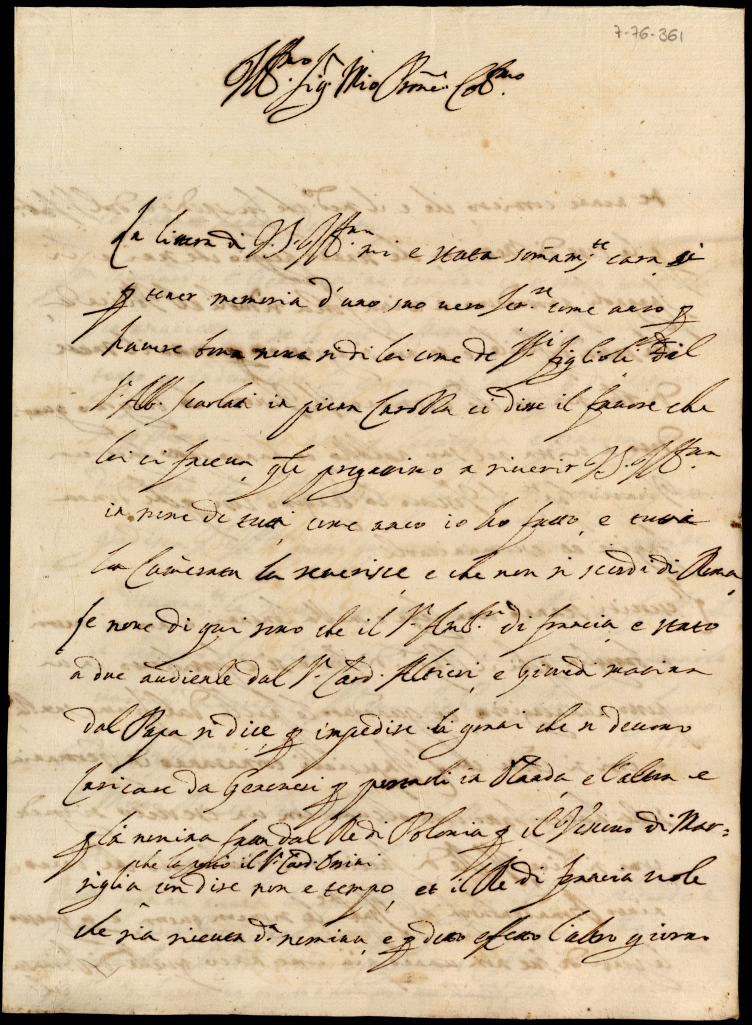 7-76-361
Ill.mo Sig.r Mio P'rone Col.mo
La littera di V.S. Ill.ma mi e stata som̃am.te cara si
p tener memoria d'uno suo vero Ser.re come anco p
havere bona nova si di lei come de S.ri figlioli dal
S.r Abb. Scarlati in piena Carozza ci disse il favore che
lei ci faceva, q.le pregavimo a riverir V.S. Ill.ma
in nome di tutti come anco io ho fatto, e tutta
la Camerata la reverisce e che non si scorda di Roma,
Le nove di qui sono che il S.r Amb.re di francia e stato
a due audienze dal S.r Card. Altieri, e Giovedi matina
dal Papa si dice p impedire li grani che si devono
Caricare da Genovesi p portarli in Olanda, e l'altra e
p la nomina fatta dal Re di Polonia p il Vescovo di Mar=
che la porto il S.r Card. Orsini
siglia con dire non e tempo, et il Re di francia vole
che sia riceuta d.a nomina, e p detto effetto l'altro giorno